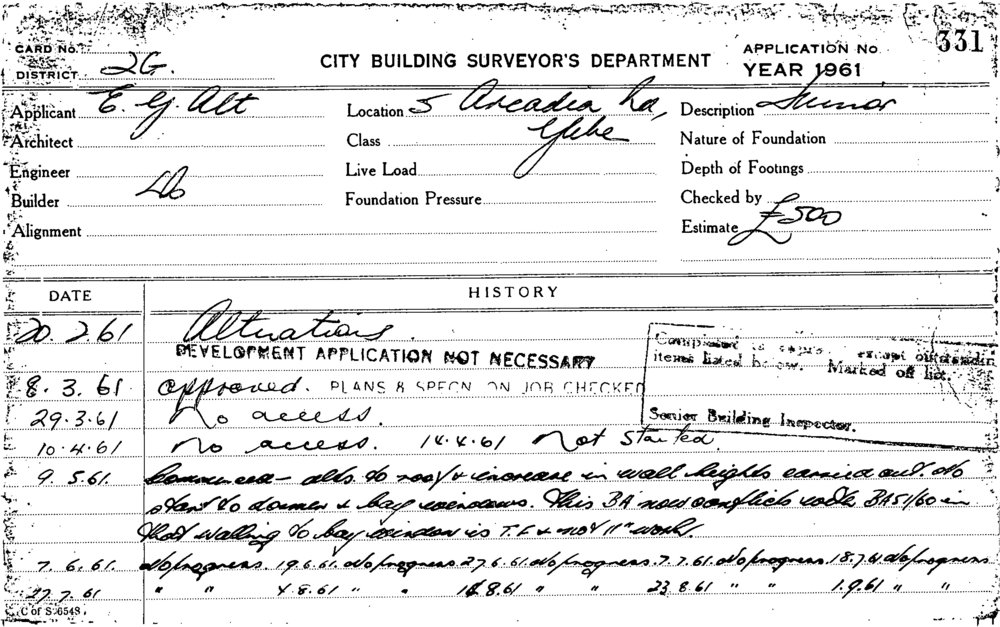 CARD No.
DISTRICT 2G.
CITY BUILDING SURVEYOR'S DEPARTMENT
APPLICATION No 331
YEAR 1961
Applicant E. G. Alt Location 5 Arcadia Rd, Description
Architect Class Glebe Nature of Foundation
Engineer Live Load Depth of Footings
Builder Do Foundation Pressure Checked by
Alignment Estimate £500
DATE HISTORY
20.2.61 Alterations.
DEVELOPMENT APPLICATION NOT NECESSARY
8.3.61 approved. PLANS & SPECN ON JOB CHECKED
Completed except outstanding
items listed below. Marked off list.
Senior Building Inspector.
29.3.61 No access.
10.4.61 No access. 14.4.61 Not Started
9.5.61. Commenced - alts. to roof & increase in wall heights carried out. No
start to dormer & bay windows. This BA now conflicts with BA51/60 in
that walling to bay window is T.F & not 11" work.
7.6.61. No progress. 19.6.61. No progress 27.6.61. No progress. 7.7.61. No progress 18.7.61 No progress
27.7.61 " " 4.8.61 " " 14.8.61 " " 23.8.61 " " 1.9.61 " "
C of S 6548.